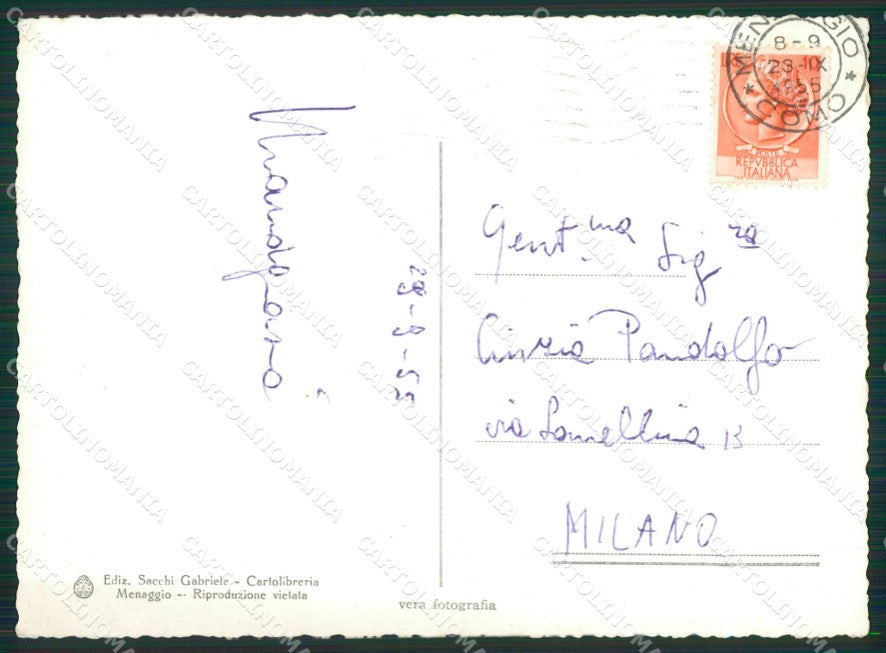 MENAGGIO
8-9
1955
* COMO *
POSTE
REPVBBLICA
ITALIANA
29-9-55
Gent.ma Sig.ra
Cinzia Pandolfo
via Lomellina 13
MILANO
Ediz. Sacchi Gabriele - Cartolibreria
Menaggio -- Riproduzione vietata
vera fotografia
CARTOLINOMANIA